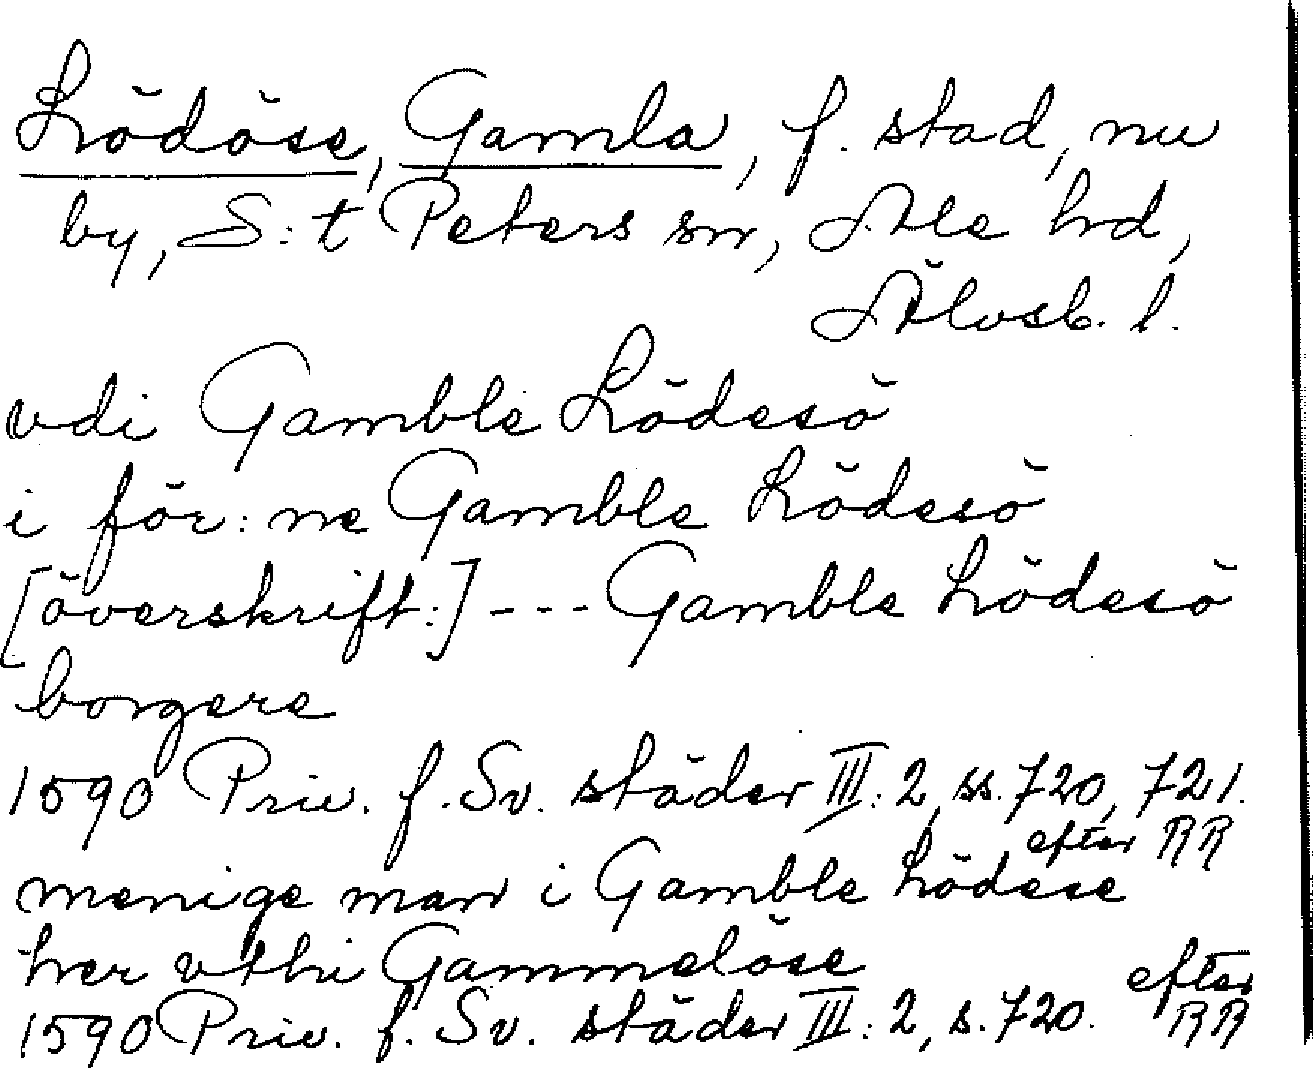 Lödöse, Gamla, f. stad, nu
by, S:t Peters sn, Ale hd,
Älvsb. l.
vdi Gamble Lödesö
i för:ne Gamble Lödesö
[överskrift:] --- Gamble Lödesö
borgere
1590 Priv. f. Sv. städer III:2, ss. 720, 721.
efter RR
menige man i Gamble Lödese
her vthi Gammelöse
efter
1590 Priv. f. Sv. städer III:2, s. 720. RR